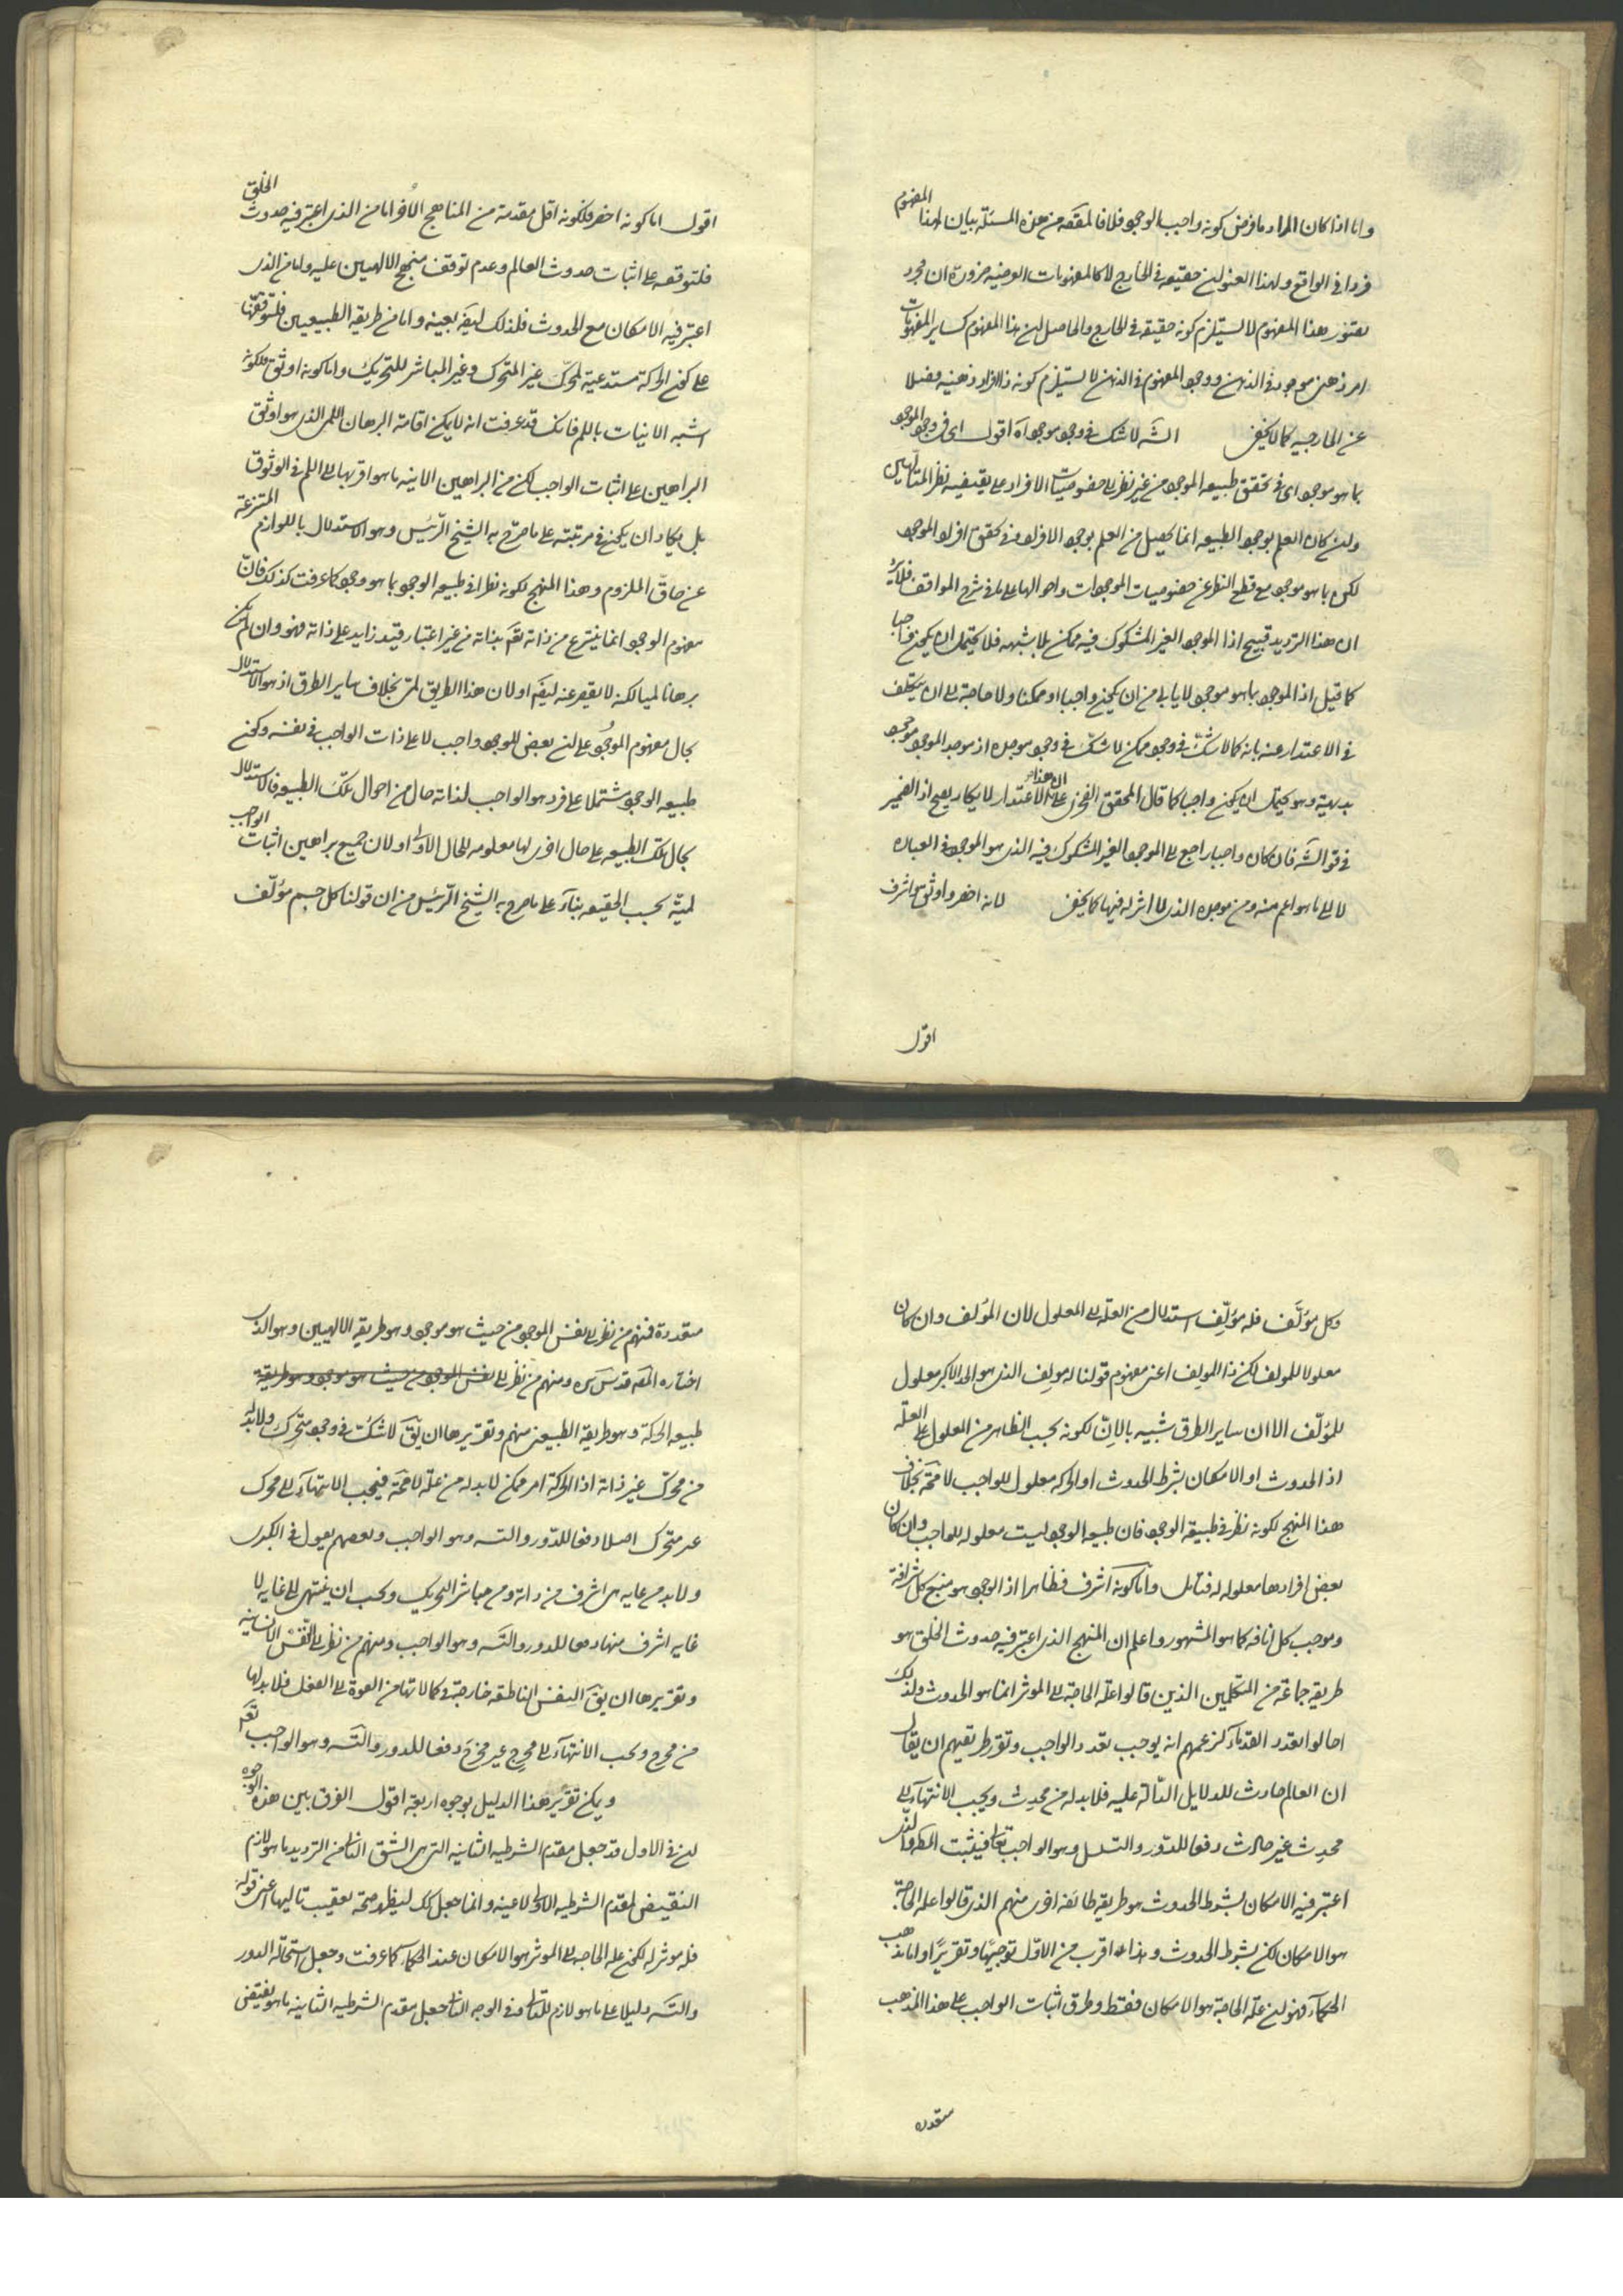 واما اذا كان المراد ما فرض كونه واجب الوجود فلا فالمقصه من هذه المسئلة بيان لهذا المفهوم
فردا فى الواقع ولهذا العنوان حقيقة فى الخارج لا كالمفهومات العرضيه ضرورة ان مجرد
تصور هذا المفهوم لا يستلزم كونه حقيقة فى الخارج والحاصل ان هذا المفهوم كساير المفهومات
امر ذهنى موجود فى الذهن ووجود المفهوم فى الذهن لا يستلزم كونه ذا افراد ذهنيه فضلا
عن الخارجيه كما لا يخفى الشه لا شك فى وجود موجود اه اقول اى فى وجود الموجود
بما هو موجود اى فى تحقق طبيعه الموجود من غير نظر الى خصوصيات الافراد على يقتضيه نظر المتالهين
وان كان العلم بوجود الطبيعه انما يحصل من العلم بوجود الافراد وفى تحقق افراد الموجود
لكن بما هو موجود مع قطع النظر عن خصوصيات الموجودات واحوالها على ما فى شرح المواقف فلا يرد
ان هذا الترديد قبيح اذ الموجود الغير المشكوك فيه ممكن بلا شبهه فلا يحتمل ان يكون واجبا
كما قيل اذ الموجود بما هو موجود لا يابى من ان يكون واجبا او ممكنا ولا حاجة الى ان يتكلف
فى الاعتذار عنه بانه كما لا شك فى وجود ممكن لا شك فى وجود موجده اذ موجد الموجود موجود
بديهة وهو يحتمل ان يكون واجبا كما قال المحقق الفخرى على ان هذا الاعتذار لا يكاد يصح اذ الضمير
فى قو الشه فان كان واجبا راجع الى الموجود الغير المشكوك فيه الذى هو الموجود فى العبارة
لا الى ما هو اعم منه ومن موجده الذى لا اثر له فيها كما يخفى لانه اخصر واوثق واشرف
اقول
اقول اما كونه اخصر فلكونه اقل مقدمة من المناهج الأخر اما من الذى اعتبر فيه حدوث الخلق
فلتوقفه على اثبات حدوث العالم وعدم توقف منهج الالهيين عليه واما من الذى
اعتبر فيه الامكان مع الحدوث فلذلك ايضه بعينه واما من طريقه الطبيعيين فلتوقفها
على كون الحركة مستدعية لمحرك غير المتحرك وغير المباشر للتحريك واما كونه اوثق فلكونه
اشبه الانيات باللم فانك قد عرفت انه لا يمكن اقامة البرهان اللمى الذى هو اوثق
البراهين على اثبات الواجب لكن من البراهين الانيه ما هو اقربها الى اللم فى الوثوق
بل يكاد ان يكون فى مرتبته على ما صرح به الشيخ الرئيس وهو الاستدلال باللوازم المنتزعة
عن حاق الملزوم وهذا المنهج لكونه نظرا فى طبيعه الوجود بما هو وجود كما عرفت كذلك فان
مفهوم الوجود انما ينتزع من ذاته تعه بذاته من غير اعتبار قيد زايد على ذاته فهو وان لم يكن
برهانا لميا لكنه لا يقصر عنه ايضه او لان هذا الطريق لمى بخلاف ساير الطرق اذ هو الاستدلال
بحال مفهوم الموجود على ان بعض الموجود واجب لا على ذات الواجب فى نفسه وكون
طبيعه الوجود مشتملا على فرد هو الواجب لذاته حال من احوال تلك الطبيعه فالاستدلال
بحال تلك الطبيعه على حال اخرى لها معلومه للحال الاولى او لان جميع براهين اثبات الواجب
لميّة بحسب الحقيقه بناء على ما صرح به الشيخ الرئيس من ان قولنا كل جسم مؤلف
وكل مؤلَّف فله مؤلِّف استدلال من العلة الى المعلول لان المؤلف وان كان
معلولا للمولف لكن ذا المولف اعنى مفهوم قولنا له مولف الذى هو الحد الاكبر معلول
للمؤلّف الا ان ساير الطرق شبيه بالانّ لكونه بحسب الظاهر من المعلول على العلّه
اذ الحدوث او الامكان بشرط الحدوث او الحركه معلول للواجب لا محة بخلاف
هذا المنهج لكونه نظر فى طبيعه الوجود فان طبيعه الوجود ليست معلوله للواجب وان كان
بعض افرادها معلوله له فتامل واما كونه اشرف فظاهر اذ الوجود هو منبع كل شرافة
وموجب كل انافه كما هو المشهور واعلم ان المنهج الذى اعتبر فيه حدوث الخلق هو
طريقه جماعة من المتكلمين الذين قالوا علة الحاجة الى الموثر انما هو الحدوث ولذلك
احالوا تعدد القدماء لزعمهم انه يوجب تعدد الواجب وتقرير طريقتهم ان يقال
ان العالم حادث للدلايل الدّالّة عليه فلا بد له من محدِث ويجب الانتهاء الى
محدِث غير حادث دفعا للدّور والتسلسل وهو الواجب تعالى فيثبت المطه والذى
اعتبر فيه الامكان بشرط الحدوث هو طريقه طائفه اخرى منهم الذى قالوا علة الحاجة
هو الامكان لكن بشرط الحدوث وهذا اقرب من الاوّل توجيهًا وتقريرًا واما مذهب
الحكماء فهو ان علّة الحاجة هو الامكان فقط وطرق اثبات الواجب على هذا المذهب
متعدده
متعددة فمنهم من نظر الى نفس الموجود من حيث هو موجود وهو طريقه الالهيين وهو الذى
اختاره المصه قدس سره ومنهم من نظر الى نفس الوجود من حيث هو موجود وهو طريقة
طبيعه الحركة وهو طريقة الطبيعى منهم وتقريرها ان يقَ لا شك فى وجود متحرك ولا بد له
من محرك غير ذاته اذ الحركة امر ممكن لا بد له من علّه لا محة فيجب الانتهاء الى محرك
غير متحرك اصلا دفعا للدّور والتسه وهو الواجب وبعضهم يعول فى الكبرى
ولا بد من غايه هى اشرف من ذاته ومن مباشر التحريك ويجب ان ينتهى الى غايه لا
غايه اشرف منها دفعا للدور والتسه وهو الواجب ومنهم من نظر الى النفس الانسانيه
وتقريرها ان يقَ النفس الناطقه خارجة فى كمالاتها من القوة الى الفعل فلا بد لها
من مخرج ويجب الانتهاء الى مخرِج غير مخرَج دفعا للدور والتسه وهو الواجب تعه
ويمكن تقرير هذا الدليل بوجوه اربعة اقول الفرق بين هذه الوجوه
ان فى الاول قد جعل مقدم الشرطيه الثانيه التى هى الشق الثانى من الترديد ما هو لازم
النقيض لمقدم الشرطيه الاولى لا عينه وانما جعل كك ليظهر صحة تعقيب تاليها اعنى قوله
فله موثر له لكون علة الحاجه الى الموثر هو الامكان عند الحكماء كما عرفت وجعل استحالة الدور
والتسه دليلا على ما هو لازم للتالى وفى الوجه الثانى جعل مقدم الشرطيه الثانيه ما هو نقيض